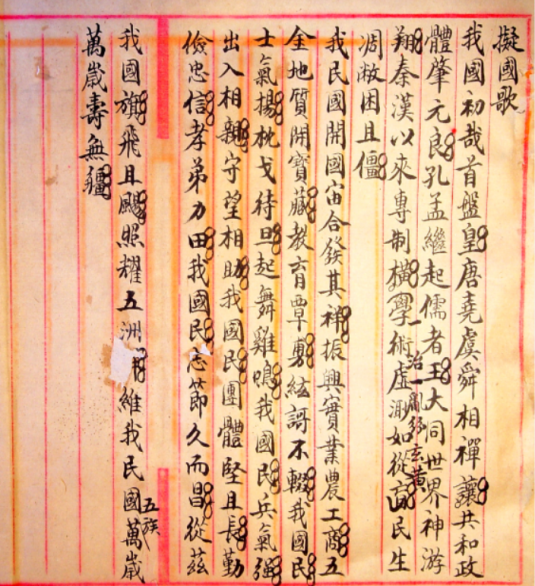 擬國歌
我國初哉首盤皇唐堯虞舜相禪讓共和政
體肇元良孔孟繼起儒者王大同世界神游
翔秦漢以來專制橫學術虛測如從盲民生
凋敝困且僵
我民國開國宙合發其祥振興實業農工商五
金地質開寶藏教育覃敷絃謌不輟我國民
士氣揚枕戈待旦起舞雞鳴我國民兵氣強
出入相親守望相助我國民團體堅且長勤
儉忠信孝弟力田我國民志節久而昌從茲
我國旗飛且颺照耀五洲維我民國五族萬歲
萬歲壽無疆